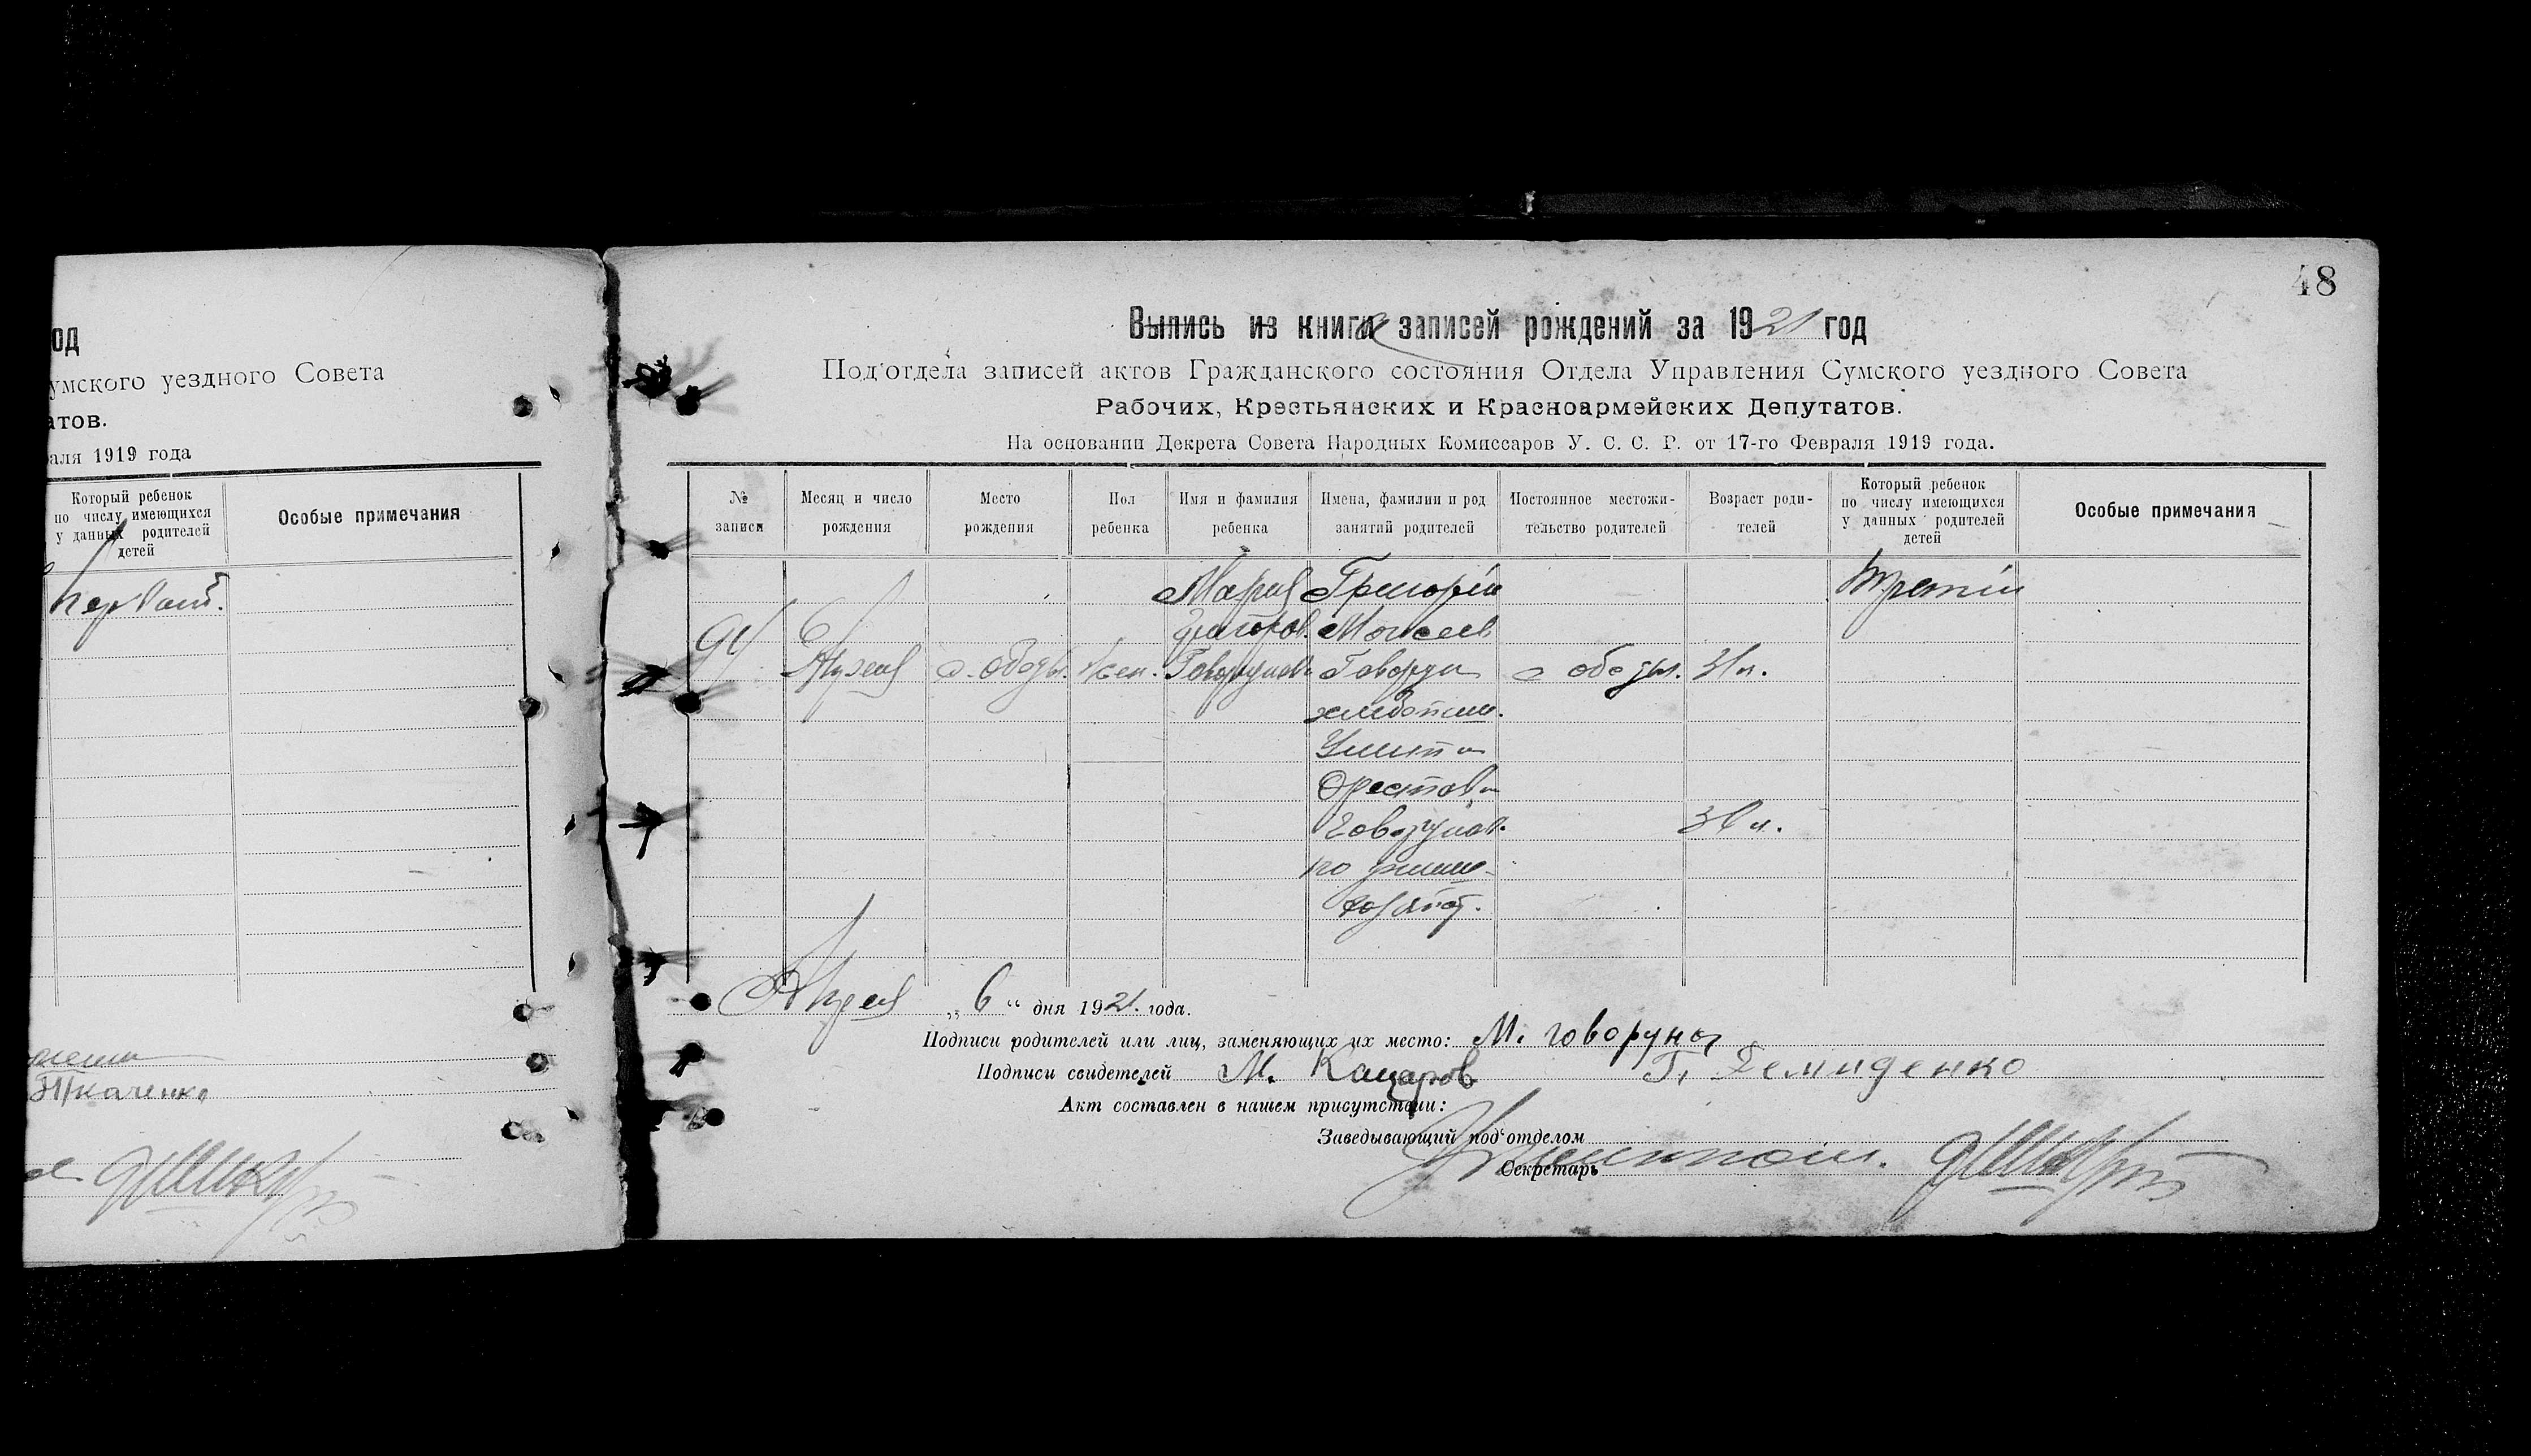 од
умского уездного Совета
атов.
аля 1919 года
Который ребенок
по числу имеющихся
у данных родителей
детей
Особые примечания
Ткаченко
48
Выпись из книги записей рождений за 1921 год
Под'отдела записей актов Гражданского состояния Отдела Управления Сумского уездного Совета
Рабочих, Крестьянских и Красноармейских Депутатов.
На основании Декрета Совета Народных Комиссаров У. С. С. Р. от 17-го Февраля 1919 года.
№
записи
Месяц и число
рождения
Место
рождения
Пол
ребенка
Имя и фамилия
ребенка
Имена, фамилии и род
занятий родителей
Постоянное местожи-
тельство родителей
Возраст роди-
телей
Который ребенок
по числу имеющихся
у данных родителей
детей
Особые примечания
Мария Григорій третій
6 Григоров. Моисеев
Апреля с. ободы. жен. Говорун с ободы. 31 л.
Орестова
по
Апреля „ 6 “ дня 1921. года.
Подписи родителей или лиц, заменяющих их место: М. говоруны
Подписи свидетелей М. Г. Демиденко
Акт составлен в нашем присутствии:
Заведывающий под'отделом
Секретарь